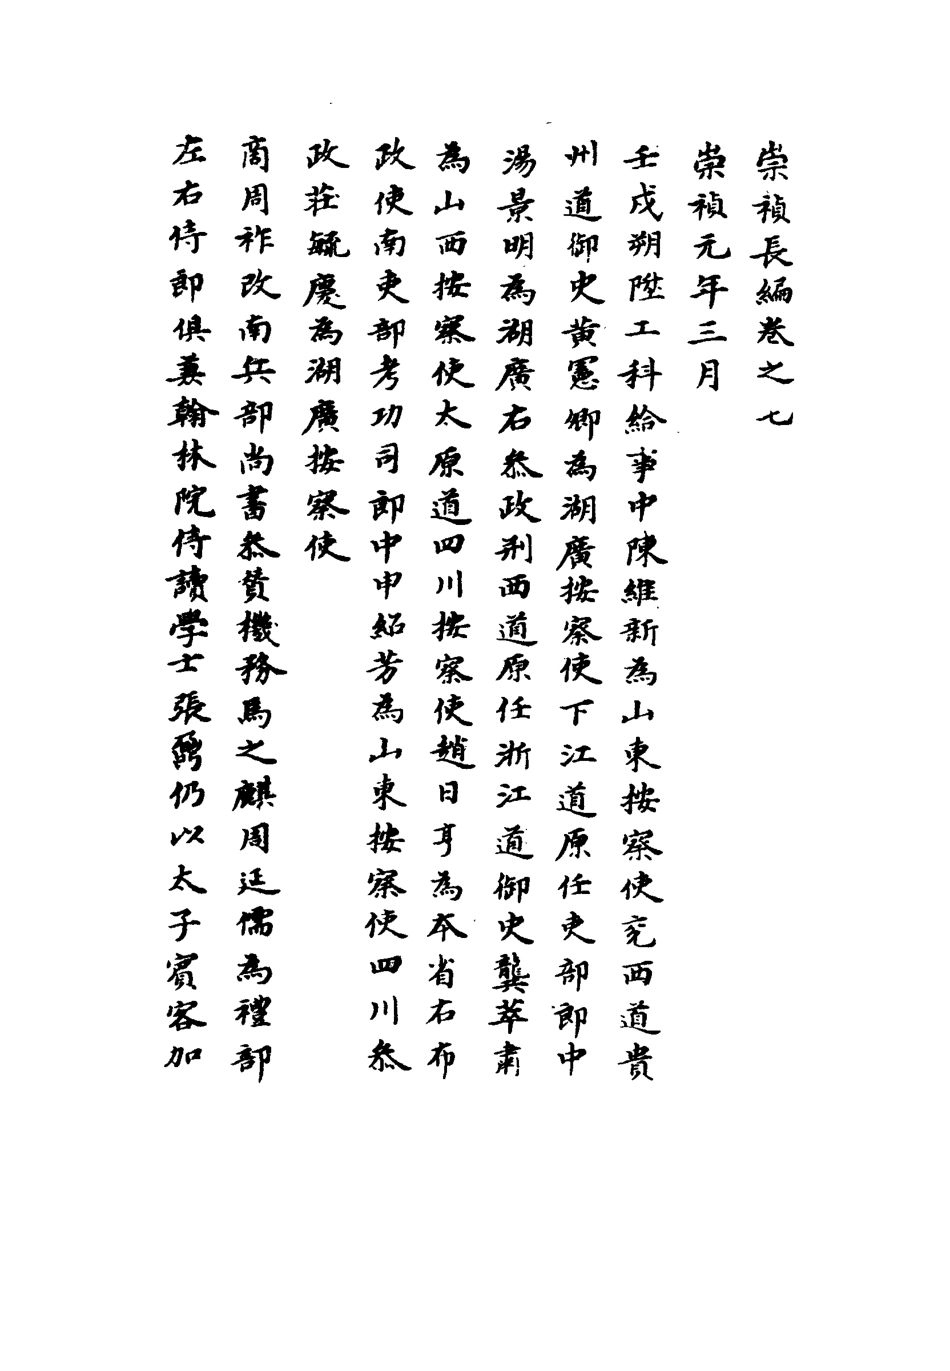 崇禎長編卷之七
崇禎元年三月
壬戌朔陞工科給事中陳維新為山東按察使兗西道貴
州道御史黃憲卿為湖廣按察使下江道原任吏部郎中
湯景明為湖廣右叅政荆西道原任浙江道御史龔萃肅
為山西按察使太原道四川按察使趙日亨為本省右布
政使南吏部考功司郎中申紹芳為山東按察使四川叅
政莊毓慶為湖廣按察使
商周祚改南兵部尚書叅贊機務馬之騏周廷儒為禮部
左右侍郎俱兼翰林院侍讀學士張鼐仍以太子賓客加